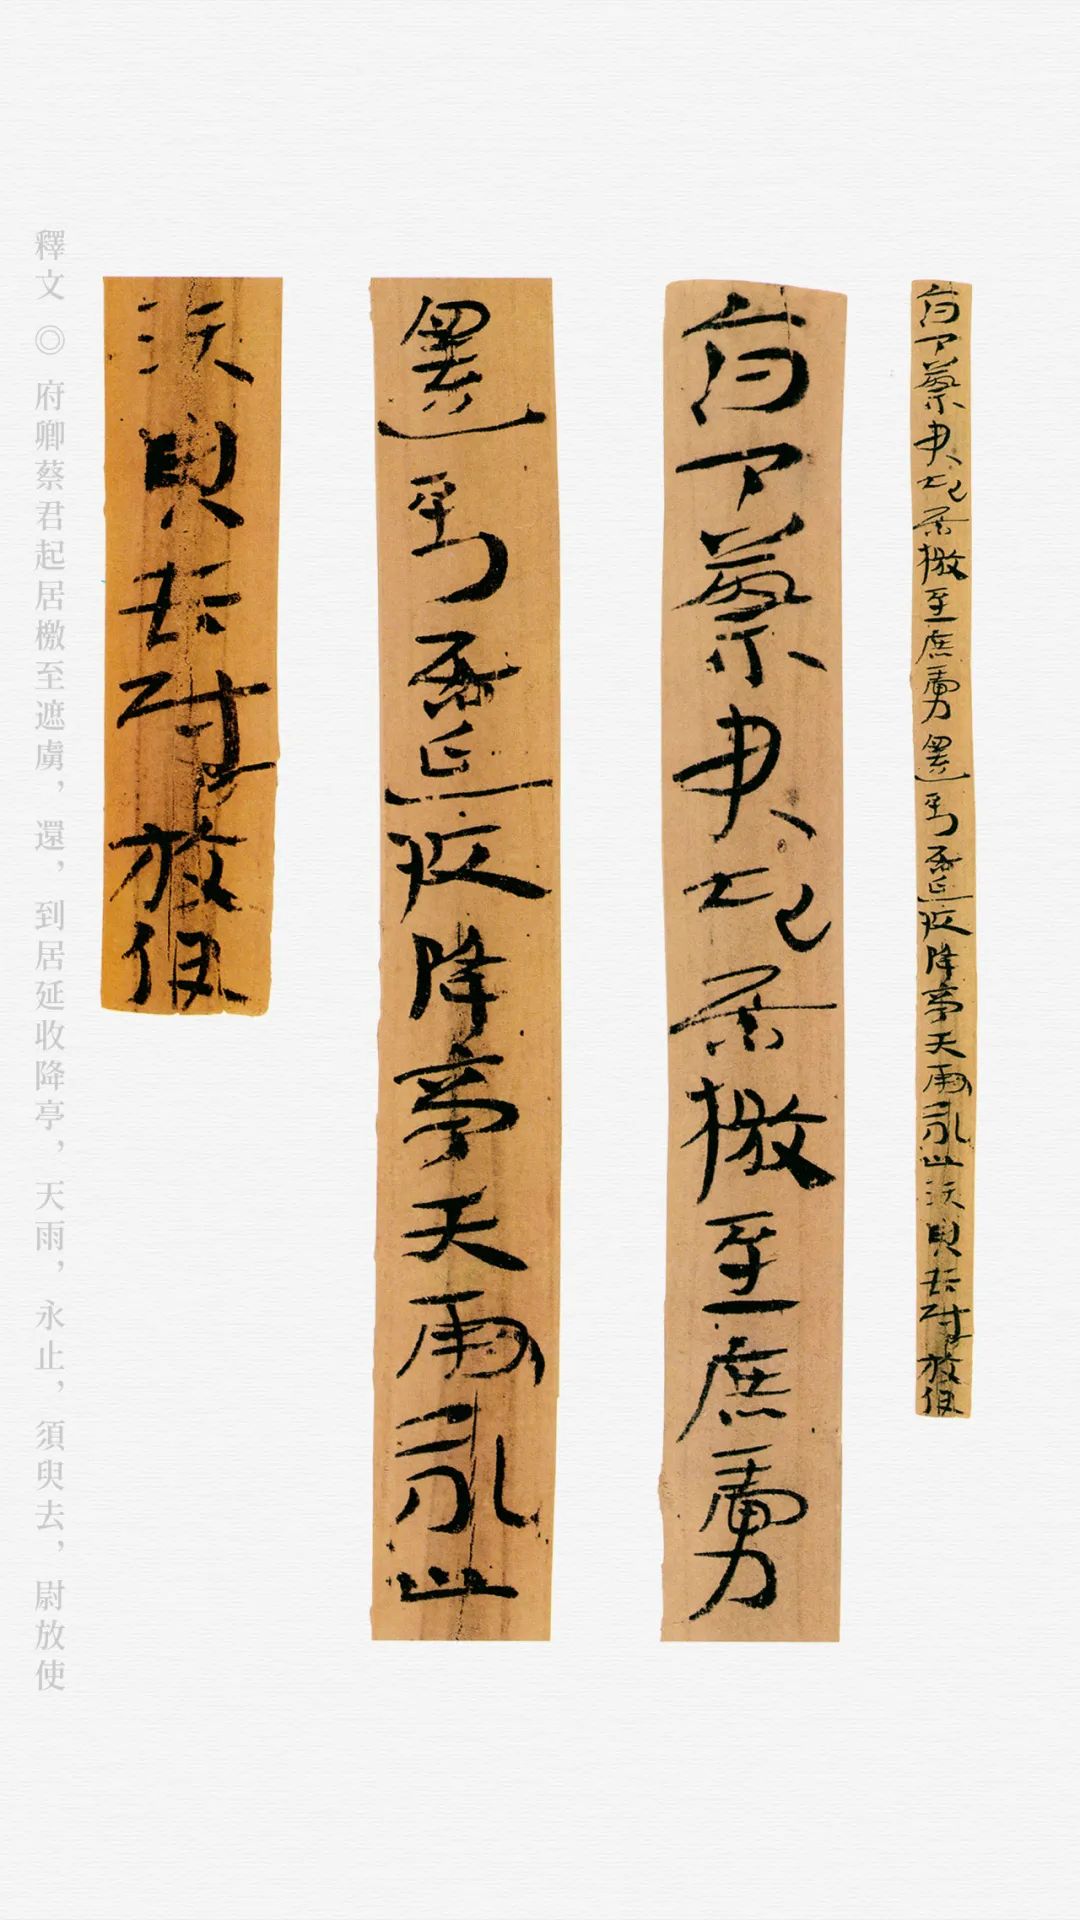 府卿蔡君起居檄至庶虜還到居延收降亭天雨永止須臾去尉放使
府卿蔡君起居檄至庶虜
還到居延收降亭天雨永止
須臾去尉放使
釋文 ◎ 府卿蔡君起居檄至遮虜，還，到居延收降亭，天雨，永止，須臾去，尉放使